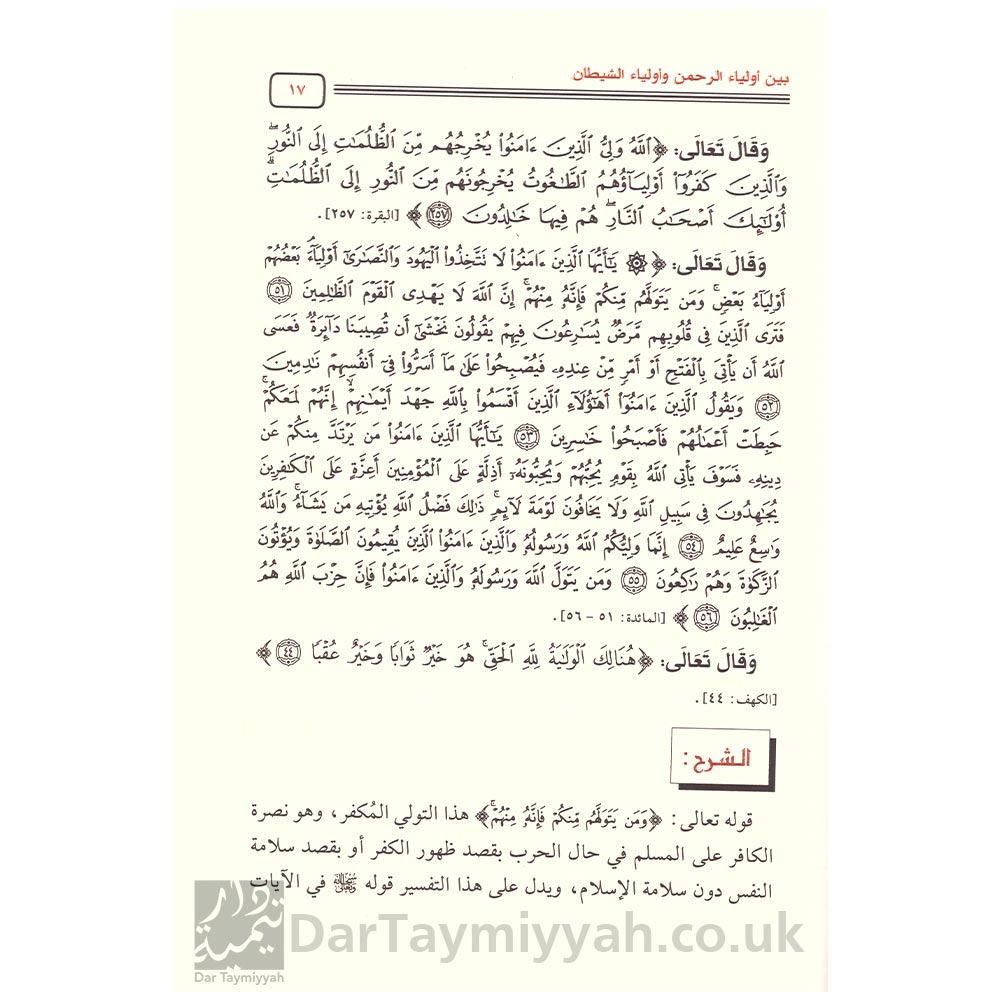 بين أولياء الرحمن وأولياء الشيطان
١٧
وَقَالَ تَعَالَى: ﴿ٱللَّهُ وَلِيُّ ٱلَّذِينَ ءَامَنُوا۟ يُخْرِجُهُم مِّنَ ٱلظُّلُمَـٰتِ إِلَى ٱلنُّورِ ۖ
وَٱلَّذِينَ كَفَرُوٓا۟ أَوْلِيَآؤُهُمُ ٱلطَّـٰغُوتُ يُخْرِجُونَهُم مِّنَ ٱلنُّورِ إِلَى ٱلظُّلُمَـٰتِ ۗ
أُو۟لَـٰٓئِكَ أَصْحَـٰبُ ٱلنَّارِ ۖ هُمْ فِيهَا خَـٰلِدُونَ ٢٥٧﴾ [البقرة: ٢٥٧].
وَقَالَ تَعَالَى: ﴿۞ يَـٰٓأَيُّهَا ٱلَّذِينَ ءَامَنُوا۟ لَا تَتَّخِذُوا۟ ٱلْيَهُودَ وَٱلنَّصَـٰرَىٰٓ أَوْلِيَآءَ ۘ بَعْضُهُمْ
أَوْلِيَآءُ بَعْضٍ ۚ وَمَن يَتَوَلَّهُم مِّنكُمْ فَإِنَّهُۥ مِنْهُمْ ۗ إِنَّ ٱللَّهَ لَا يَهْدِى ٱلْقَوْمَ ٱلظَّـٰلِمِينَ ٥١
فَتَرَى ٱلَّذِينَ فِى قُلُوبِهِم مَّرَضٌ يُسَـٰرِعُونَ فِيهِمْ يَقُولُونَ نَخْشَىٰٓ أَن تُصِيبَنَا دَآئِرَةٌ ۚ فَعَسَى
ٱللَّهُ أَن يَأْتِىَ بِٱلْفَتْحِ أَوْ أَمْرٍ مِّنْ عِندِهِۦ فَيُصْبِحُوا۟ عَلَىٰ مَآ أَسَرُّوا۟ فِىٓ أَنفُسِهِمْ نَـٰدِمِينَ
٥٢ وَيَقُولُ ٱلَّذِينَ ءَامَنُوٓا۟ أَهَـٰٓؤُلَآءِ ٱلَّذِينَ أَقْسَمُوا۟ بِٱللَّهِ جَهْدَ أَيْمَـٰنِهِمْ ۙ إِنَّهُمْ لَمَعَكُمْ ۚ
حَبِطَتْ أَعْمَـٰلُهُمْ فَأَصْبَحُوا۟ خَـٰسِرِينَ ٥٣ يَـٰٓأَيُّهَا ٱلَّذِينَ ءَامَنُوا۟ مَن يَرْتَدَّ مِنكُمْ عَن
دِينِهِۦ فَسَوْفَ يَأْتِى ٱللَّهُ بِقَوْمٍ يُحِبُّهُمْ وَيُحِبُّونَهُۥٓ أَذِلَّةٍ عَلَى ٱلْمُؤْمِنِينَ أَعِزَّةٍ عَلَى ٱلْكَـٰفِرِينَ
يُجَـٰهِدُونَ فِى سَبِيلِ ٱللَّهِ وَلَا يَخَافُونَ لَوْمَةَ لَآئِمٍ ۚ ذَٰلِكَ فَضْلُ ٱللَّهِ يُؤْتِيهِ مَن يَشَآءُ ۚ وَٱللَّهُ
وَٰسِعٌ عَلِيمٌ ٥٤ إِنَّمَا وَلِيُّكُمُ ٱللَّهُ وَرَسُولُهُۥ وَٱلَّذِينَ ءَامَنُوا۟ ٱلَّذِينَ يُقِيمُونَ ٱلصَّلَوٰةَ وَيُؤْتُونَ
ٱلزَّكَوٰةَ وَهُمْ رَٰكِعُونَ ٥٥ وَمَن يَتَوَلَّ ٱللَّهَ وَرَسُولَهُۥ وَٱلَّذِينَ ءَامَنُوا۟ فَإِنَّ حِزْبَ ٱللَّهِ هُمُ
ٱلْغَـٰلِبُونَ ٥٦﴾ [المائدة: ٥١ - ٥٦].
وَقَالَ تَعَالَى: ﴿هُنَالِكَ ٱلْوَلَـٰيَةُ لِلَّهِ ٱلْحَقِّ ۚ هُوَ خَيْرٌ ثَوَابًا وَخَيْرٌ عُقْبًا ٤٤﴾
[الكهف: ٤٤].
الشرح:
قوله تعالى: ﴿وَمَن يَتَوَلَّهُم مِّنكُمْ فَإِنَّهُۥ مِنْهُمْ ۗ﴾ هذا التولي المُكفر، وهو نصرة
الكافر على المسلم في حال الحرب بقصد ظهور الكفر أو بقصد سلامة
النفس دون سلامة الإسلام، ويدل على هذا التفسير قوله في الآيات
دار تيمية
Dar Taymiyyah
DarTaymiyyah.co.uk